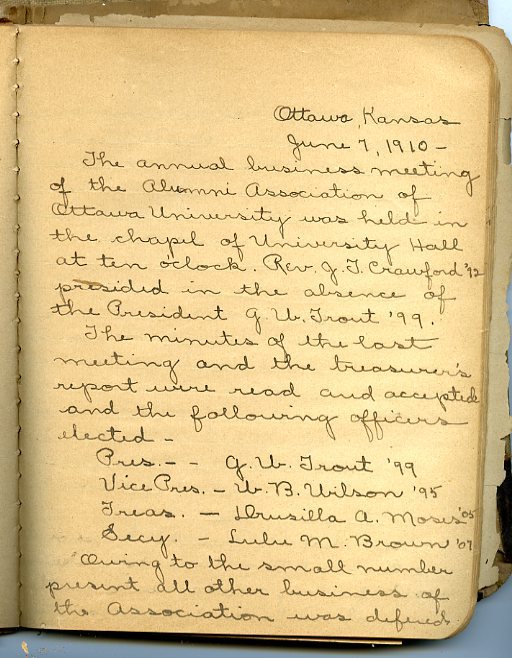 Ottawa, Kansas
June 7, 1910 -
The annual business meeting
of the Alumni Association of
Ottawa University was held in
the chapel of University Hall
at ten o'clock. Rev. J. T. Crawford '92
presided in the absence of
the President G. W. Trout '99.
The minutes of the last
meeting and the treasurer's
report were read and accepted
and the following officers
elected -
Pres. - - G. W. Trout '99
Vice Pres. - W. B. Wilson '95
Treas. - Drusilla A. Moses '05
Secy. - Lulu M. Brown '07
Owing to the small number
present all other business of
the Association was defered.